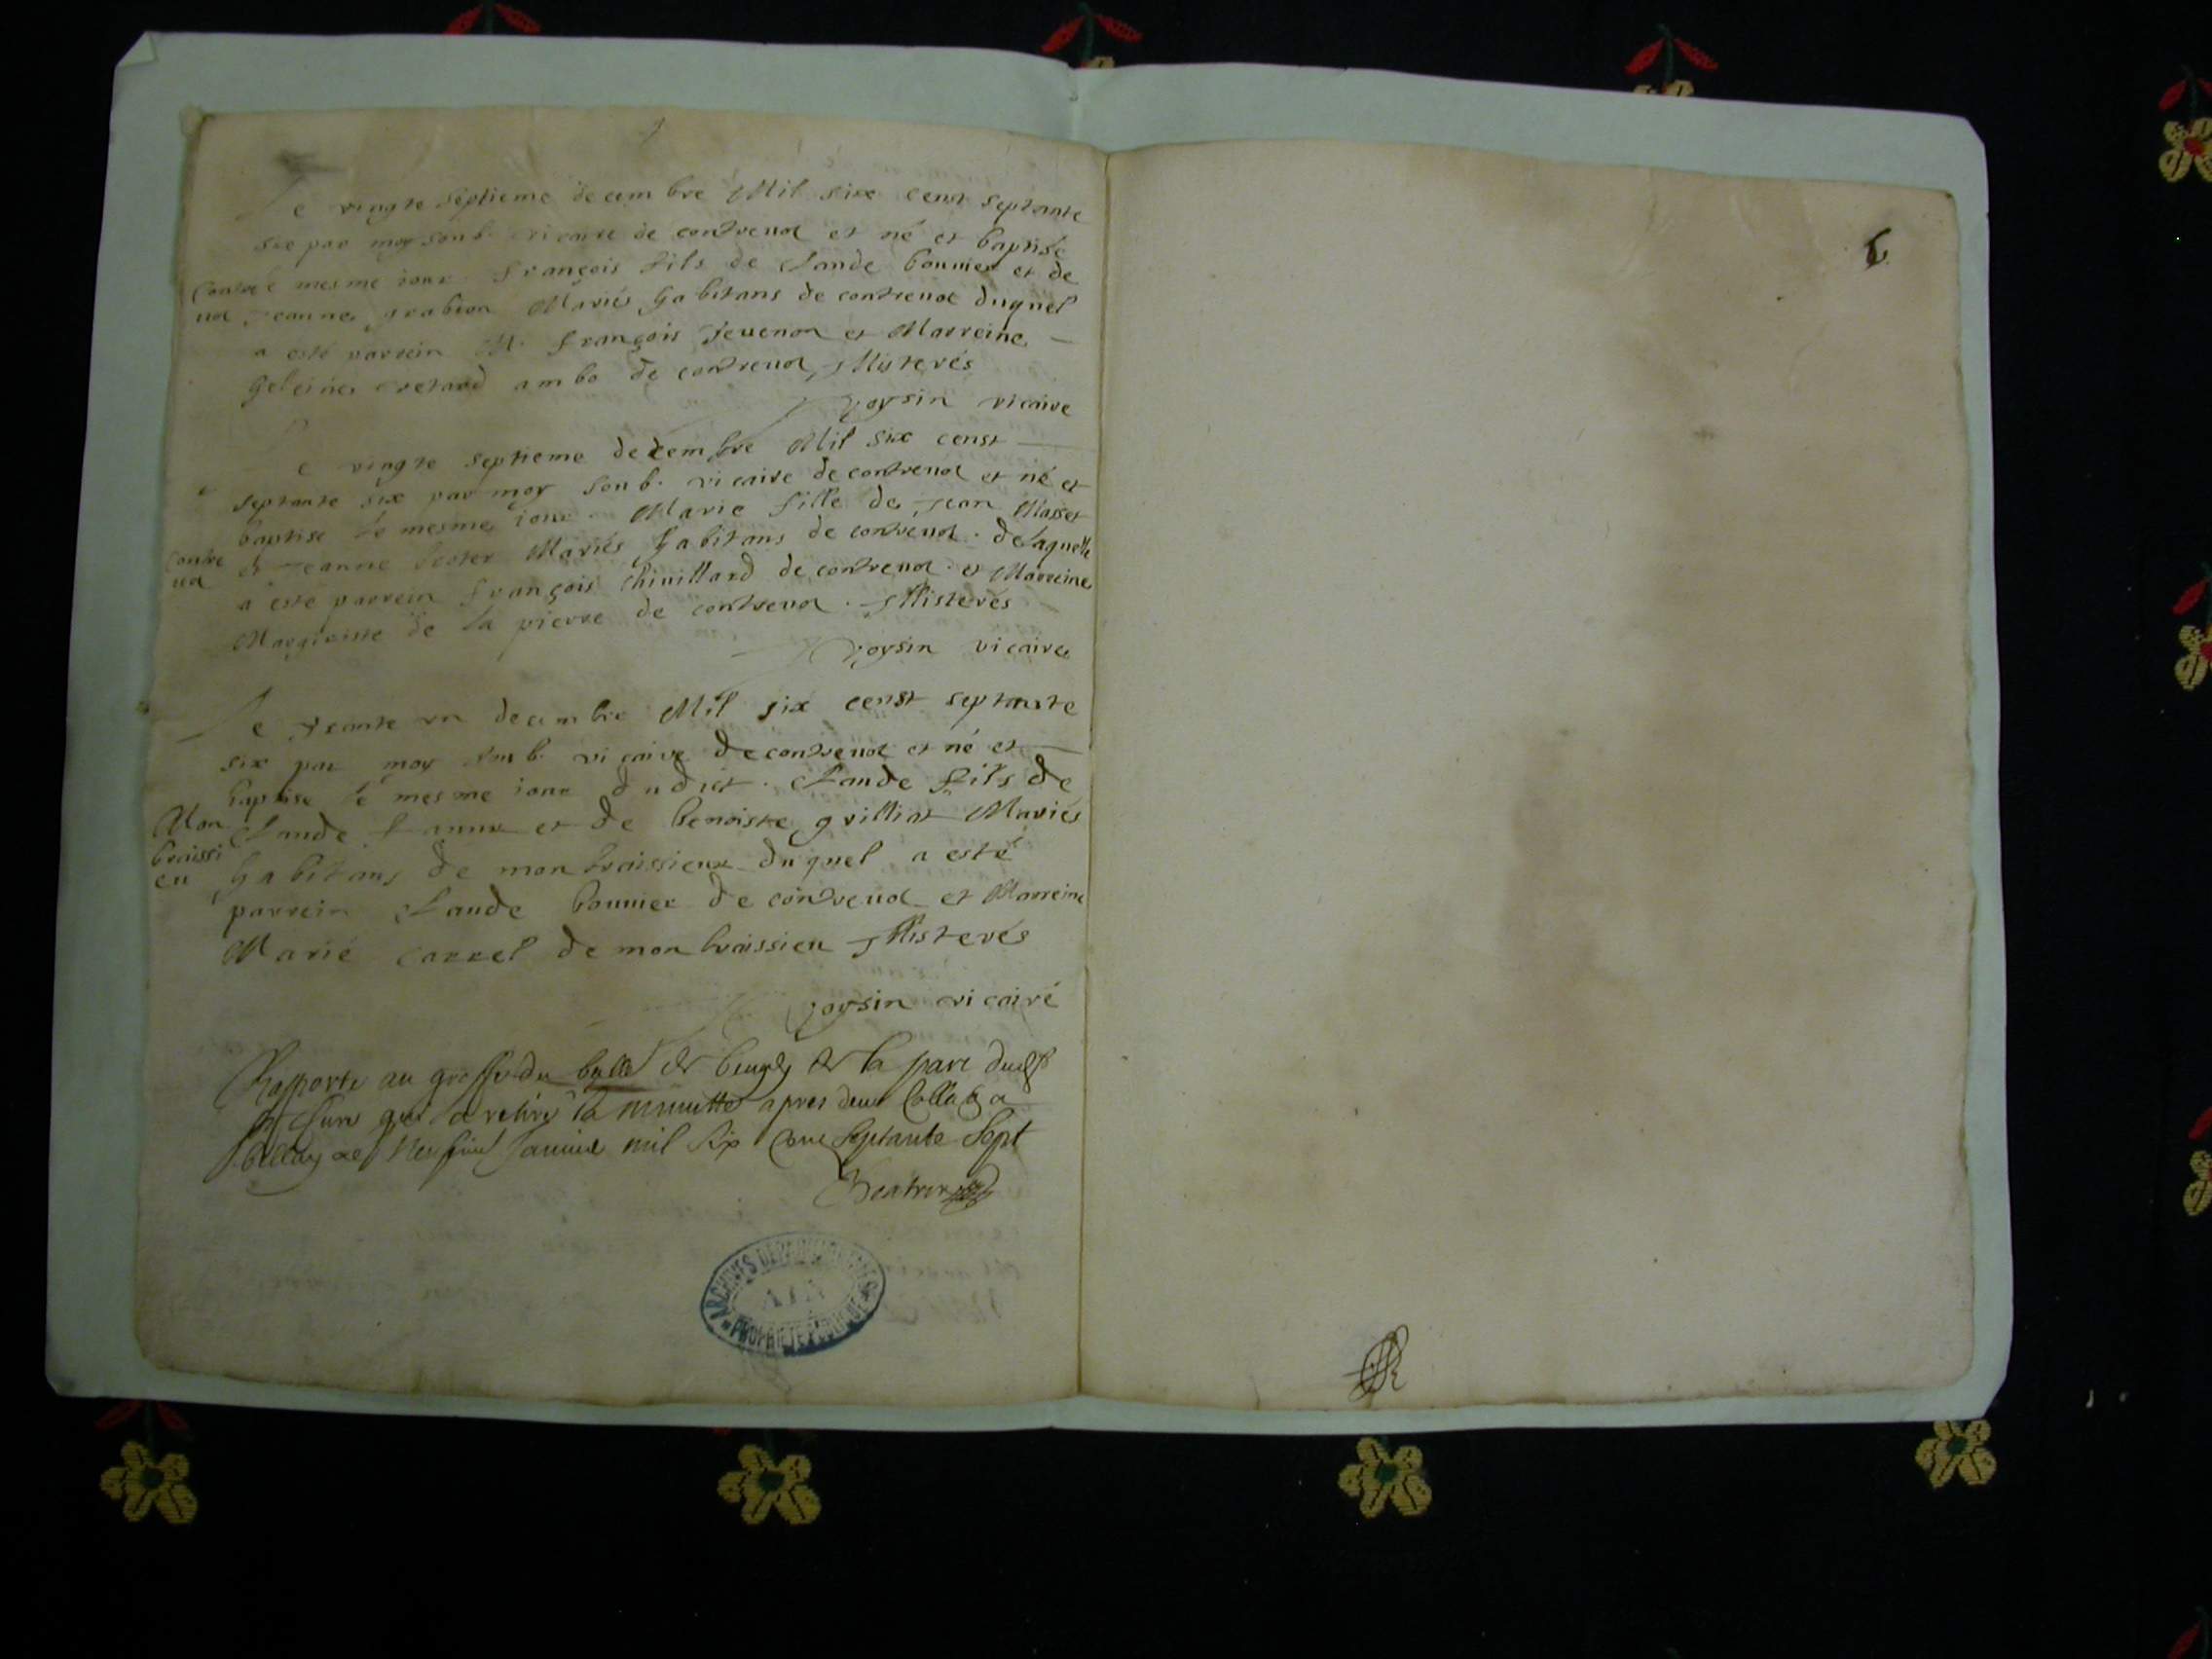 Le vingte septieme decembre Mil six censt septante
six par moy soub. vicaire de contrevot et né et baptisé
Contre
vot
le mesme iour françois fils de Claude bonnier et de
Jeanne grabion Mariés habitans de contrevot duquel
a esté parrein M. françois Jeuenon et Marreine
heleine retard ambo de contrevot Misterés
Voysin vicaire
Le vingte septieme decembre Mil six censt
septante six par moy soub. vicaire de contrevot et né et
baptise le mesme iour Marie fille de Jean Masset
Contre
vot
et Jeanne Mariés habitans de contrevot. de laquelle
a esté parrein françois Chinillard de contrevot et Marreine
de la pierre de contrevot. Misterés
Voysin vicaire
Le trante un decembre Mil six censt septante
six par moy soub. vicaire de contrevot et né et
baptise le mesme iour dudict. Claude fils de
Mon
braissi
eu
Claude et de benoiste grilliat Mariés
habitans de montbraissieux duquel a esté
parrein Claude bonnier de contrevot et Marreine
Marie carrel de monbraissieu Misterés
Voysin vicairé
Rapporte au greffe du de la part dudict
Sr Cure qui a retire la minutte apres deue Colla a
belley ce Janvier mil six Cent septante sept
ARCHIVES DEPARTEMENTALES
AIN
PROPRIETE PUBLIQUE
6